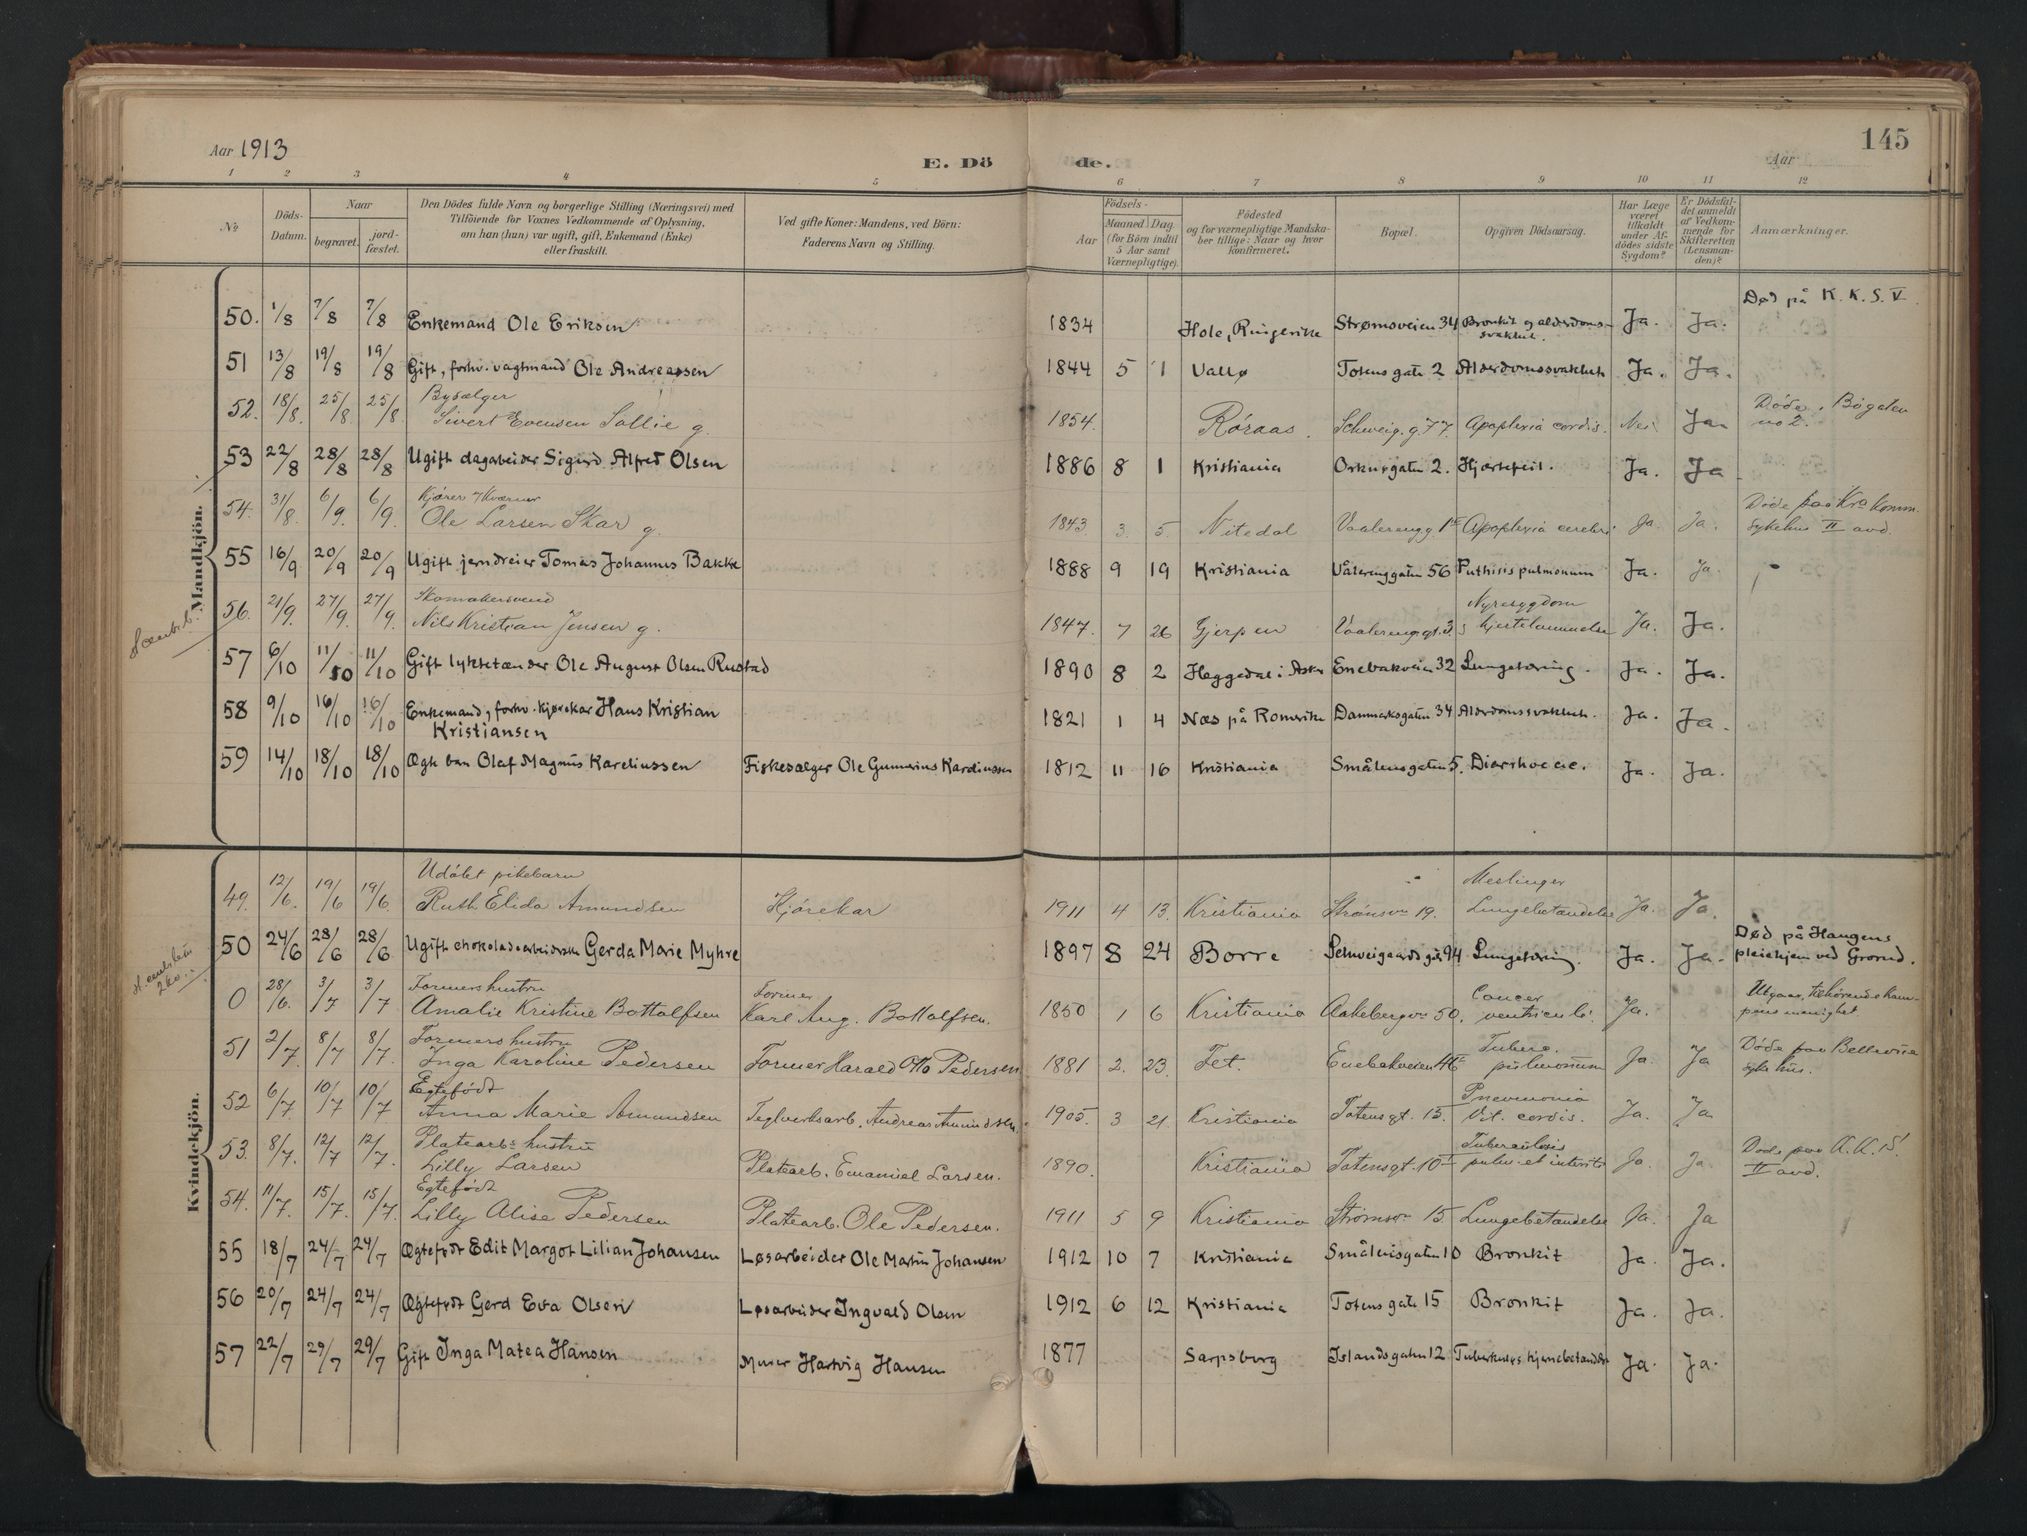 Aar 1913
E. Döde.
Aar
145
1 2 3 4 5 6 7 8 9 10 11 12
No
Döds-Datum.
Naar
begravet.
jordfæstet.
Den Dödes fulde Navn og borgerlige Stilling (Næringsvei) med
Tilföiende for Voxnes Vedkommende af Oplysning,
om han (hun) var ugift, gift, Enkemand (Enke)
eller fraskilt.
Ved gifte Koner: Mandens, ved Börn:
Faderens Navn og Stilling.
Födsels-
Aar
Maaned Dag.
(for Börn indtil
5 Aar samt
Værnepligtige).
Födested
og for værnepligtige Mandskaber tillige: Naar og hvor
konfirmeret.
Bopæl.
Opgiven Dödsaarsag.
Har Læge været tilkaldt under Afdödes sidste Sygdom?
Er Dödsfaldet anmeldt af Vedkommende for Skifteretten (Lensmanden)?
Anmærkninger.
Mandkjön.
50. 1/8 7/8 7/8 Enkemand Ole Eriksen 1834 Hole, Ringerike Strømsveien 34 Bronkit og alderdomssvakhet. Ja. Ja. Død på K. K. S. V.
51 13/8 19/8 19/8 Gift, forhv. vagtmand Ole Andreassen 1844 5 1 Vallø Totens gate 2 Alderdomssvakhet Ja. Ja.
52. 18/8. 25/8 25/8. Bysælger
Sivert Evensen Sollie g. 1854. Röraas. Schweig. g. 77. Apoplexia cordis. Nei Ja. Döde i Bögaten
no 2.
53 22/8 28/8 28/8 Ugift dagarbeider Sigurd Alfred Olsen 1886 8 1 Kristiania Orknøgaten 2. Hjærtefeil. Ja. Ja
54. 31/8. 6/9. 6/9. Kjörer
Ole Larsen Skar g. 1843 3. 5. Nitedal Vaalerengg. Apoplexia cerebri Ja. Ja. Döde paa Kra Komm.
Sykehus II avd.
55 16/9 20/9 20/9 Ugift jerndreier Tomas Johannes Bakke 1888 9 19 Kristiania Vålerenggaten 56 Puthisis pulmonum Ja. Ja.
56. 21/9. 27/9. 27/9. Skomakersvend
Nils Kristian Jensen g. 1847. 7 26 Gjerpen Vaalereng. gt. 3. Nyresygdom
hjertelammelse Ja. Ja.
57 6/10 11/10 11/10 Gift lyktetænder Ole August Olsen Rustad 1890 8 2 Heggedal i Asker Enebakveien 32 Lungetæring. Ja. Ja.
58 9/10 16/10 16/10 Enkemand, forhv. kjørekar Hans Kristian
Kristiansen 1821 1 4 Næs på Romerike Danmarksgaten 34 Alderdomssvakhet. Ja. Ja.
59 14/10 18/10 18/10 Ægte barn Olaf Magnus Kareliussen Fiskesælger Ole Gunerius Kareliussen 1812 11 16 Kristiania Smålensgaten 5. Diarrhoeae. Ja. Ja.
Kvindekjön.
49. 12/6. 19/6 19/6. Udöbt pikebarn
Ruth Elida Amundsen Kjörekar 1911 4 13. Kristiania Strömsvn 19. Meslinger
Lungebetændelse Ja. Ja.
50 24/6 28/6 28/6 Ugift chokoladearbeiderske Gerda Marie Myhre 1897 8 24 Borre Schweigaards gate 94 Lungetæring. Ja. Ja. Død på Haugens
pleiehjem ved Grorud.
0 28/6. 3/7 3/7 Formers hustru
Amalie Kristine Bottolfsen Former
Karl Aug. Bottolfsen. 1850 1 6 Kristiania Aakebergvn 50. Cancer
ventriculi. Ja. Utgaar, tilhörende Kampens menighet
51 2/7. 8/7 8/7. Formers hustru
Inga Karoline Pedersen Former Harald Otto Pedersen 1881 2. 23. Fet. Enebakveien 46 Tuberc.
pulmonum Ja. Ja Döde paa Bellevue
sykehus.
52 6/7. 10/7 10/7 Egtefödt
Anna Marie Amundsen Teglverksarb. Andreas Amundsen. 1905. 3 21. Kristiania Totensgt. 15. Pneumonia
Vit. cordis. Ja. Ja
53. 8/7. 12/7 12/7. Platearbs hustru
Lilly Larsen Platearb. Emanuel Larsen. 1890. Kristiania Totensgt. 10 Tuberculosis
pulm. et intestit Ja. Ja Döde paa K. K. S.
II avd.
54. 11/7. 15/7. 15/7. Egtefödt
Lilly Alise Pedersen Platearb. Ole Pedersen. 1911 5 9 Kristiania Strömsvn 15 Lungebetændelse Ja. Ja
55 18/7 24/7 24/7 Ægtefødt Edit Margot Lilian Johansen Løsarbeider Ole Martin Johansen 1912 10 7 Kristiania Smålensgaten 10 Bronkit Ja. Ja.
56 20/7 24/7 24/7 Ægtefødt Gerd Eva Olsen Løsarbeider Ingvald Olsen 1912 6 12 Kristiania Totens gate 15 Bronkit Ja. Ja.
57 22/7 29/7 29/7 Gift Inga Matea Hansen Murer Hartvig Hansen 1877 Sarpsborg Islandsgaten 12 Tuberkuløs hjernebetændelse Ja. Ja.